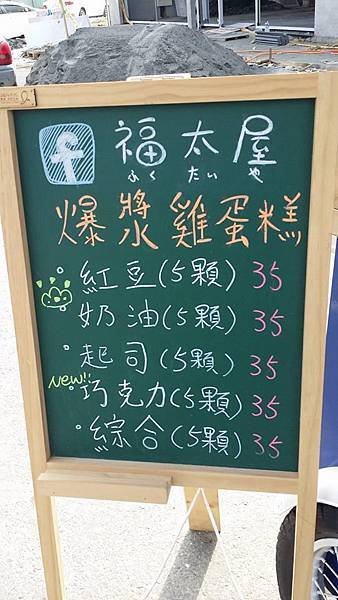 福太屋
ふく たい や
爆漿雞蛋糕
紅豆(5顆) 35
奶油(5顆) 35
起司(5顆) 35
New!! 巧克力(5顆) 35
綜合(5顆) 35